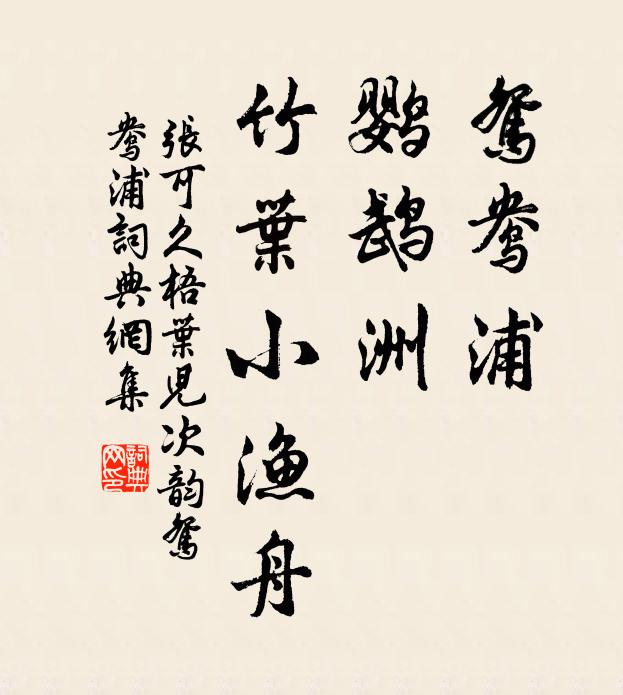 鴛鴦浦
鸚鵡洲
竹葉小漁舟
張可久梧葉兒次韵鴛
鴦浦詞典網集
詞典
网印